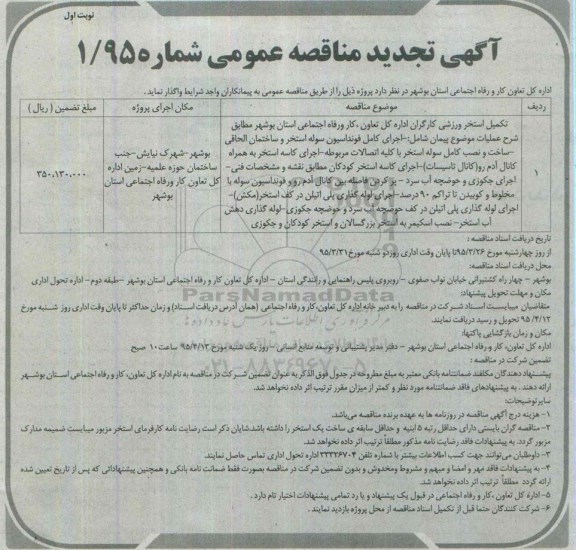 نوبت اول
آگهی تجدید مناقصه عمومی شماره ۱/۹۵
اداره کل تعاون کار و رفاه اجتماعی استان بوشهر در نظر دارد پروژه ذیل را از طریق مناقصه عمومی به پیمانکاران واجد شرایط واگذار نماید .
ردیف
موضوع مناقصه
مکان اجرای پروژه
مبلغ تضمین ( ریال )
۱
تکمیل استخر ورزشی کارگران اداره کل تعاون ،کار ورفاه اجتماعی استان بوشهر مطابق
شرح عملیات موضوع پیمان شامل:-اجرای کامل فونداسیون سوله استخر و ساختمان الحاقی
-ساخت و نصب کامل سوله استخر با کلیه اتصالات مربوطه-اجرای کاسه استخر به همراه
کانال آدم رو(کانال تاسیسات)-اجرای کاسه استخر کودکان مطابق نقشه و مشخصات فنی-
اجرای جکوزی و حوضچه آب سرد - پر کردن فاصله بین کانال آدم رو و فونداسیون سوله با
مخلوط و کوبیدن تا تراکم ۹۰ درصد-اجرای لوله گذاری پلی اتیلن در کف استخر(مکش)-
اجرای لوله گذاری پلی اتیلن در کف حوضچه آب سرد و حوضچه جکوزی-لوله گذاری دهش
آب استخر- نصب اسکیمر به استخر بزرگسالان و استخر کودکان و جکوزی
بوشهر-شهرک نیایش-جنب
ساختمان حوزه علمیه-زمین اداره
کل تعاون کار ورفاه اجتماعی استان
بوشهر
۳۵۰،۱۳۰،۰۰۰
تاریخ دریافت اسناد مناقصه :
از روز چهارشنبه مورخ ۹۵/۳/۲۶تا پایان وقت اداری روزدو شنبه مورخ۹۵/۳/۳۱
محل دریافت اسناد مناقصه:
بوشهر - چهار راه کشتیرانی خیابان نواب صفوی - روبروی پلیس راهنمایی و رانندگی استان - اداره کل تعاون کار و رفاه اجتماعی استان بوشهر -طبقه دوم- اداره تحول اداری
مکان و مهلت تحویل پیشنهاد:
متقاضیان میبایست اسناد شرکت در مناقصه را به دبیر خانه اداره کل تعاون،کار و رفاه اجتماعی (همان آدرس دریافت اسناد) و زمان حداکثر تا پایان وقت اداری روز شنبه مورخ
۹۵/۴/۱۲ تحویل و رسید دریافت نمایند.
مکان و زمان بازگشایی پاکتها:
اداره کل تعاون، کار و رفاه اجتماعی استان بوشهر - دفتر مدیر پشتیبانی و توسعه منابع انسانی - روز یک شنبه مورخ ۹۵/۴/۱۳ ساعت ۱۰ صبح
تضمین شرکت در مناقصه :
پیشنهاد دهندگان مکلفند ضمانتنامه بانکی معتبر به مبلغ مطروحه در جدول فوق الذکر به عنوان تضمین شرکت در مناقصه به نام اداره کل تعاون، کار و رفاه اجتماعی استان بوشهر
ارائه دهند . به پیشنهادهای فاقد ضمانتنامه مورد نظر و کمتر از میزان مقرر ترتیب اثر داده نخواهد شد.
سایر توضیحات:
۱- هزینه درج آگهی مناقصه در روزنامه ها به عهده برنده مناقصه می‌باشد.
۲- مناقصه گران بایستی دارای حداقل رتبه ۵ ابنیه و حداقل سابقه ی ساخت یک استخر را داشته باشد.شایان ذکر است رضایت نامه کارفرمای استخر مزبور میبایست ضمیمه مدارک
مزبور گردد. به پیشنهادات فاقد رضایت نامه مذکور مطلقا ترتیب اثر داده نخواهد شد.
۳- داوطلبان می‌توانند جهت کسب اطلاعات بیشتر با شماره تلفن ۳۳۳۳۶۷۰۴ اداره تحول اداری تماس حاصل نمایند.
۴- به پیشنهادات فاقد مهر و امضا و مبهم و مشروط ومخدوش و بدون تضمین شرکت در مناقصه بصورت فقط ضمانت نامه بانکی و همچنین پیشنهاداتی که پس از تاریخ تعیین شده
ارائه گردد مطلقاً ترتیب اثر داده نخواهد شد.
۵- اداره کل تعاون ،کار و رفاه اجتماعی در قبول یک پیشنهاد و یا رد تمامی پیشنهادات اختیار تام دارد .
۶- شرکت کنندگان حتما قبل از تکمیل اسناد مناقصه از محل پروژه بازدید نمایند .
ParsNamadData